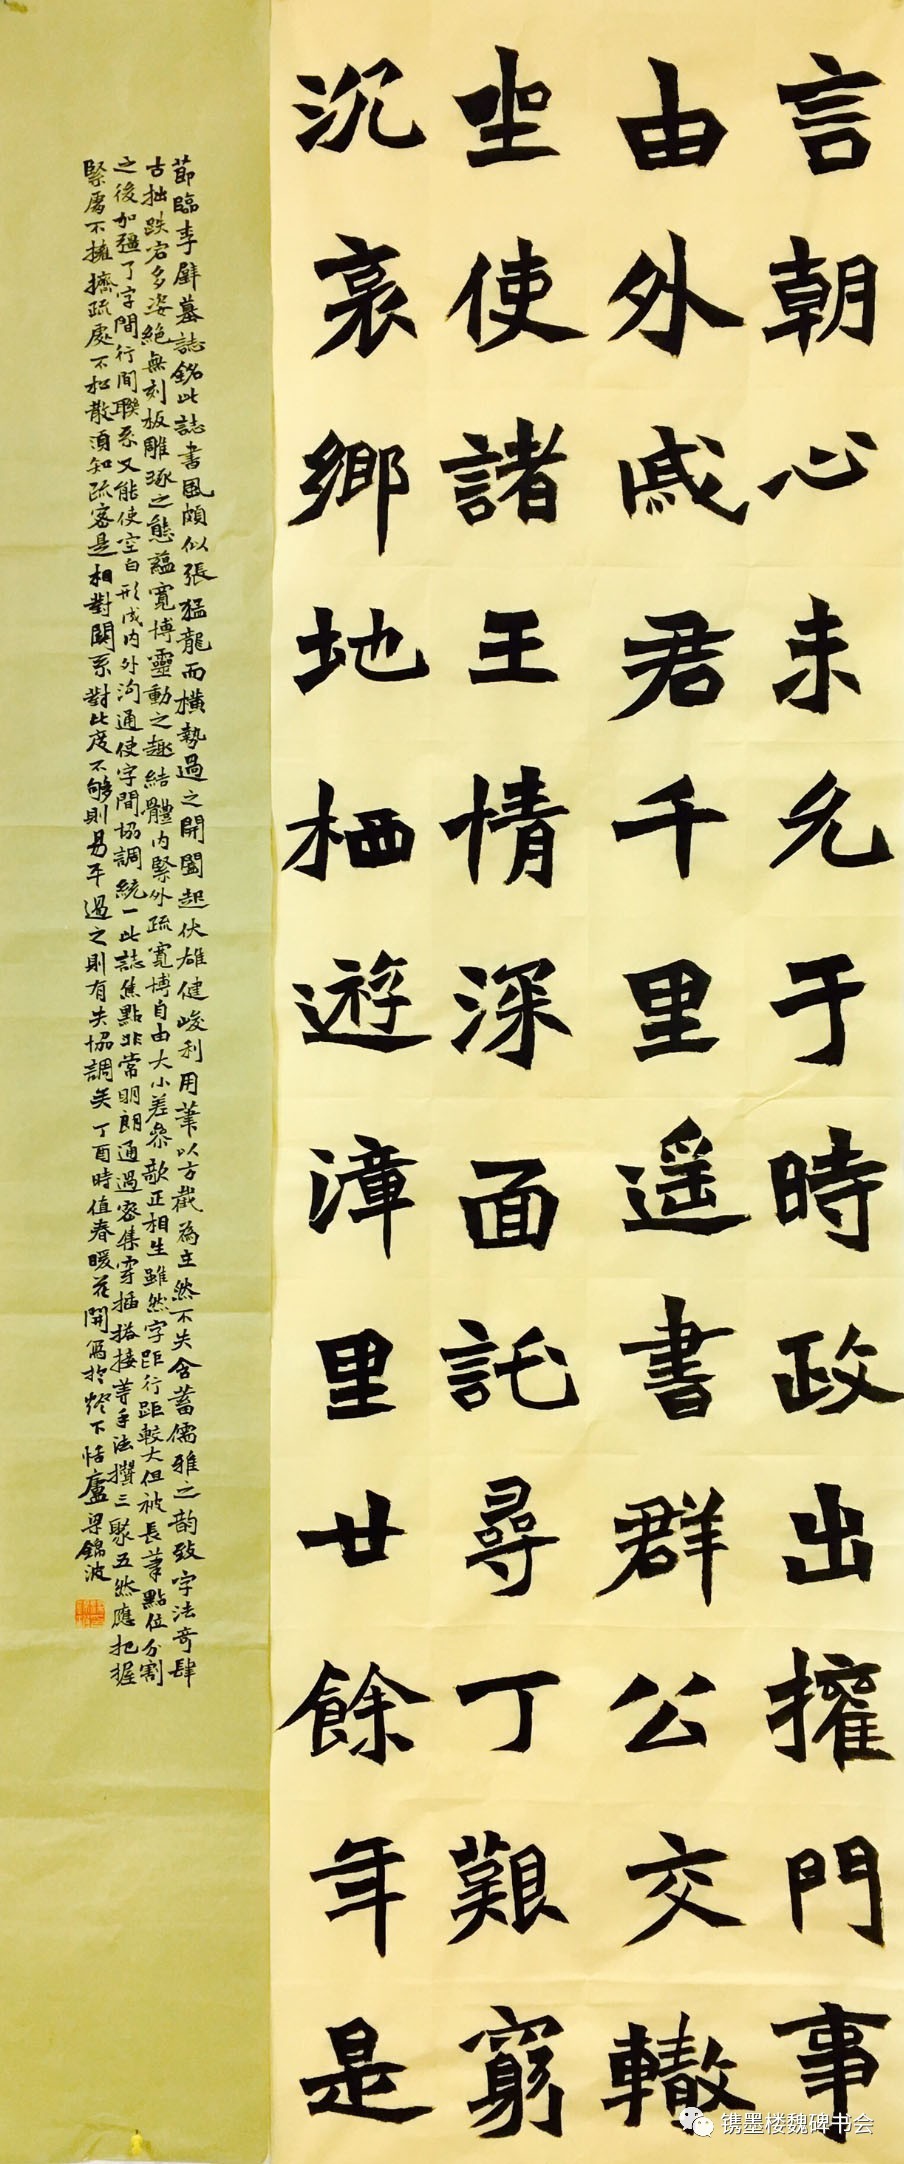 言朝心未允于時政出擁門事
由外戚君千里遥書群公交轍
坐使諸王情深面託尋丁艱窮
沉哀鄉地栖遊漳里廿餘年是
節臨李壁墓誌銘此誌書風頗似張猛龍而橫勢過之開闔起伏雄健峻利用筆以方截為主然不失含蓄儒雅之韵致字法奇肆
古拙跌宕多姿絕無刻板雕琢之態蘊寬博靈動之趣結體內緊外疏寬博自由大小差參欹正相生雖然字距行距較大但被長筆點位分割
之後加強了字間行間聯系又能使空白形成內外溝通使字間協調統一此誌焦點非常明朗通過密集穿插搭接等手法攢三聚五然應把握
緊處不擁擠疏處不松散須知疏密是相對關系對比度不够則易平過之則有失協調矣丁酉時值春暖花開寫於燈下恬廬梁錦波
镌墨楼魏碑书会